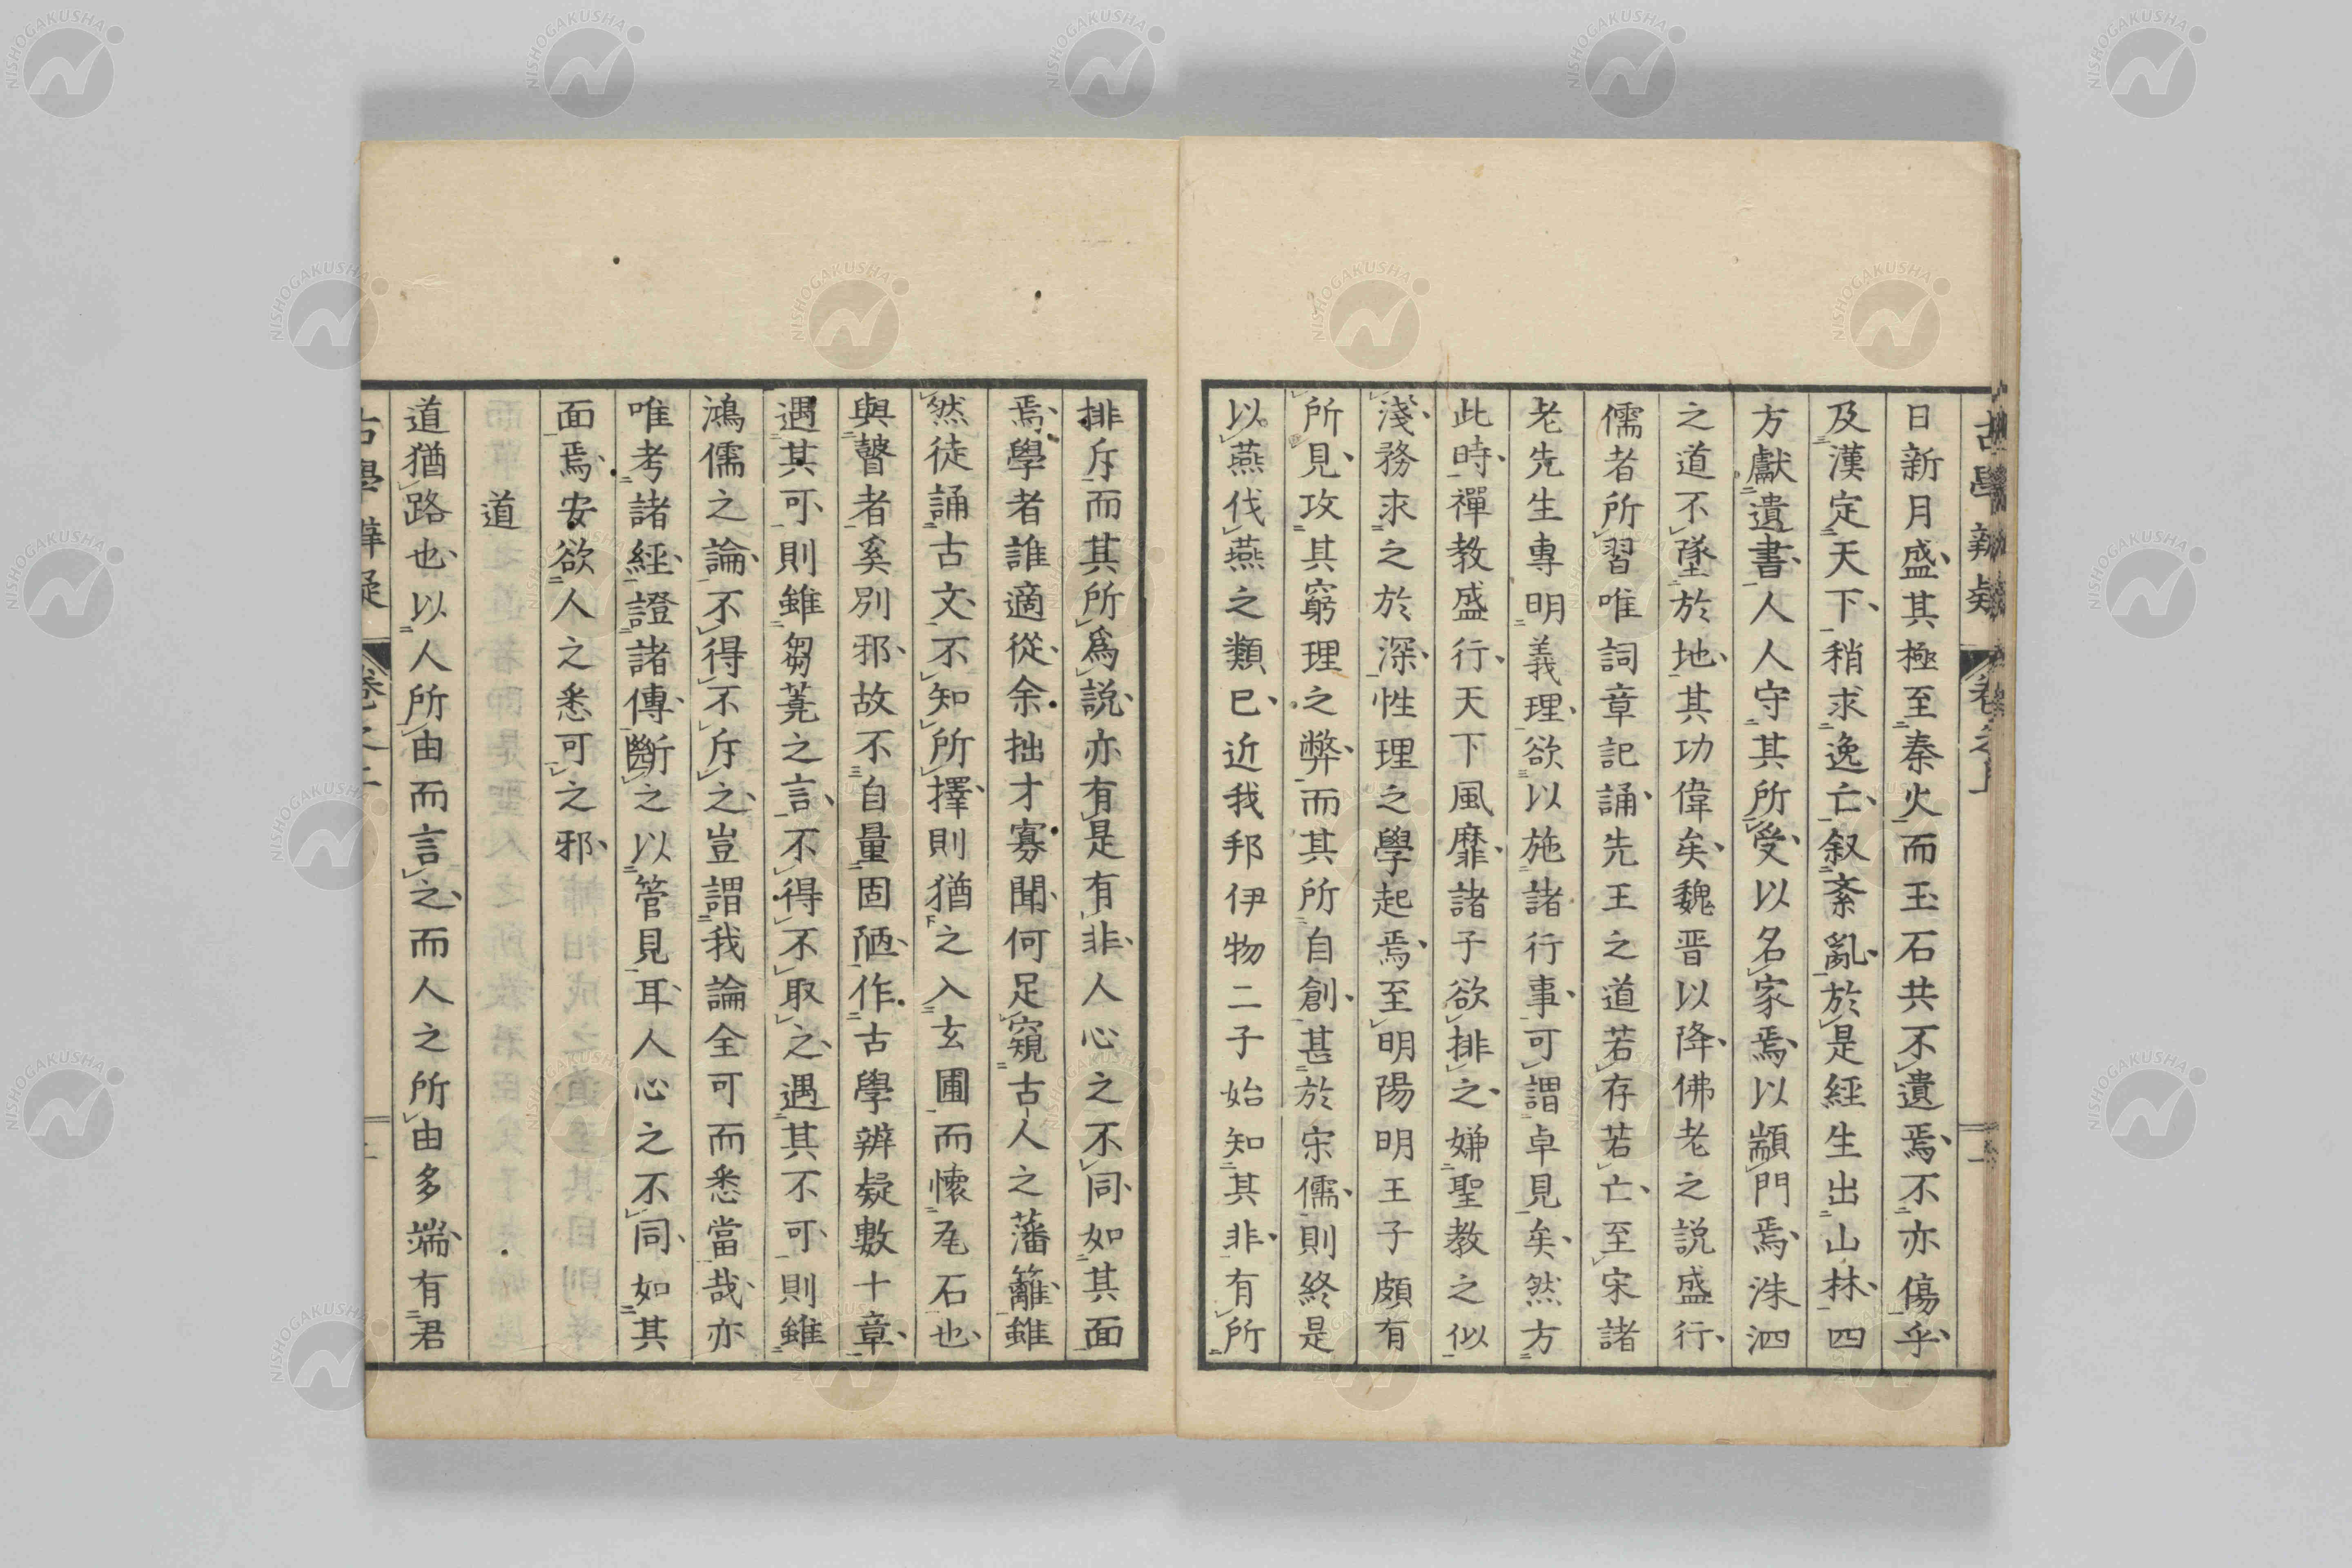 古學辨疑 卷之上
日新月盛其極至秦火而玉石共不遺焉不亦傷乎
及漢定天下稍求逸亡叙紊亂於是經生出山林四
方獻遺書人人守其所受以名家焉以顓門焉洙泗
之道不墜於地其功偉矣魏晋以降佛老之説盛行
儒者所習唯詞章記誦先王之道若存若亡至宋諸
老先生專明義理欲以施諸行事可謂卓見矣然方
此時禪教盛行天下風靡諸子欲排之嫌聖教之似
淺務求之於深性理之學起焉至明陽明王子頗有
所見攻其窮理之弊而其所自創甚於宋儒則終是
以燕伐燕之類已近我邦伊物二子始知其非有所
排斥而其所爲説亦有是有非人心之不同如其面
焉學者誰適從余拙才寡聞何足窺古人之藩籬雖
然徒誦古文不知所擇則猶之入玄圃而懷瓦石也
與瞽者奚別邪故不自量固陋作古學辨疑數十章
遇其可則雖芻蕘之言不得不取之遇其不可則雖
鴻儒之論不得不斥之豈謂我論全可而悉當哉亦
唯考諸經證諸傳斷之以管見耳人心之不同如其
面焉安欲人之悉可之邪
道
道猶路也以人所由而言之而人之所由多端有君
古學辨疑 卷之上
NISHOGAKUSHA